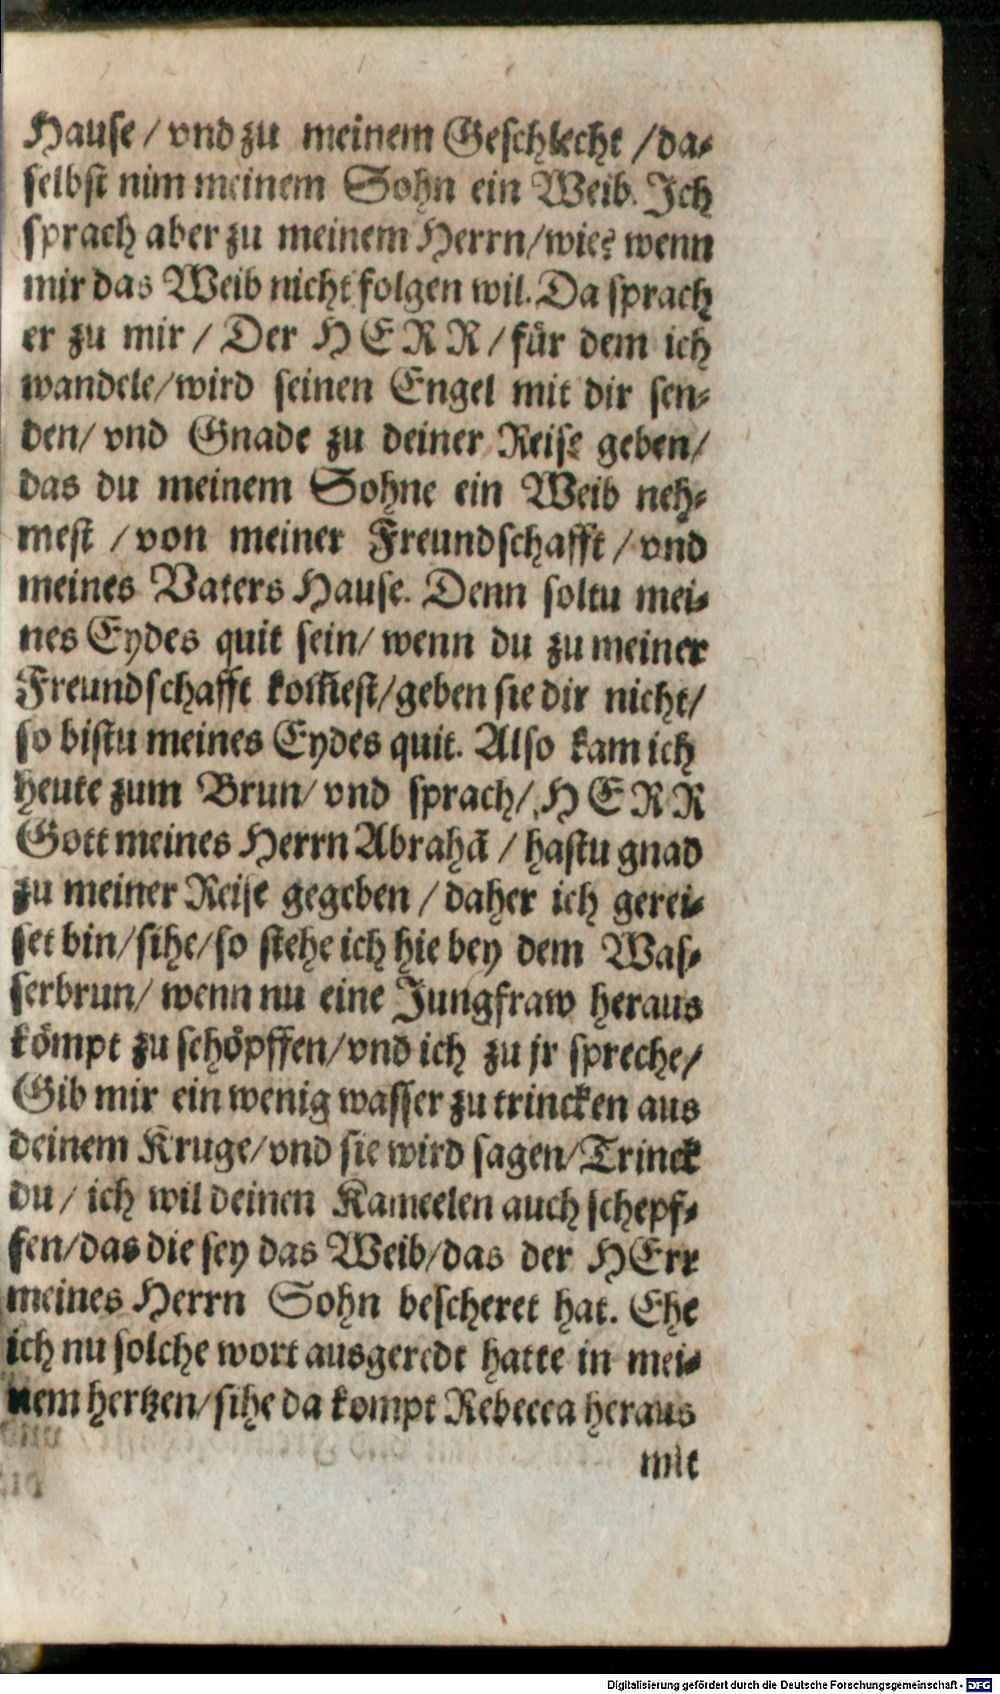 Hause / vnd zu meinem Geschlecht / da-
selbst nim meinem Sohn ein Weib. Ich
sprach aber zu meinem Herrn / wie? wenn
mir das Weib nicht folgen wil. Da sprach
er zu mir / Der HERR / für dem ich
wandele / wird seinen Engel mit dir sen-
den / vnd Gnade zu deiner Reise geben /
das du meinem Sohne ein Weib neh-
mest / von meiner Freundschafft / vnd
meines Vaters Hause. Denn soltu mei-
nes Eydes quit sein / wenn du zu meiner
Freundschafft kom̃est / geben sie dir nicht /
so bistu meines Eydes quit. Also kam ich
heute zum Brun / vnd sprach / HERR
Gott meines Herrn Abrahã / hastu gnad
zu meiner Reise gegeben / daher ich gerei-
set bin / sihe / so stehe ich hie bey dem Was-
serbrun / wenn nu eine Jungfraw heraus
kömpt zu schöpffen / vnd ich zu jr spreche /
Gib mir ein wenig wasser zu trincken aus
deinem Kruge / vnd sie wird sagen / Trinck
du / ich wil deinen Kameelen auch schepf-
fen / das die sey das Weib / das der HErr
meines Herrn Sohn bescheret hat. Ehe
ich nu solche wort ausgeredt hatte in mei-
nem hertzen / sihe da kompt Rebecca heraus
mit
Digitalisierung gefördert durch die Deutsche Forschungsgemeinschaft - DFG